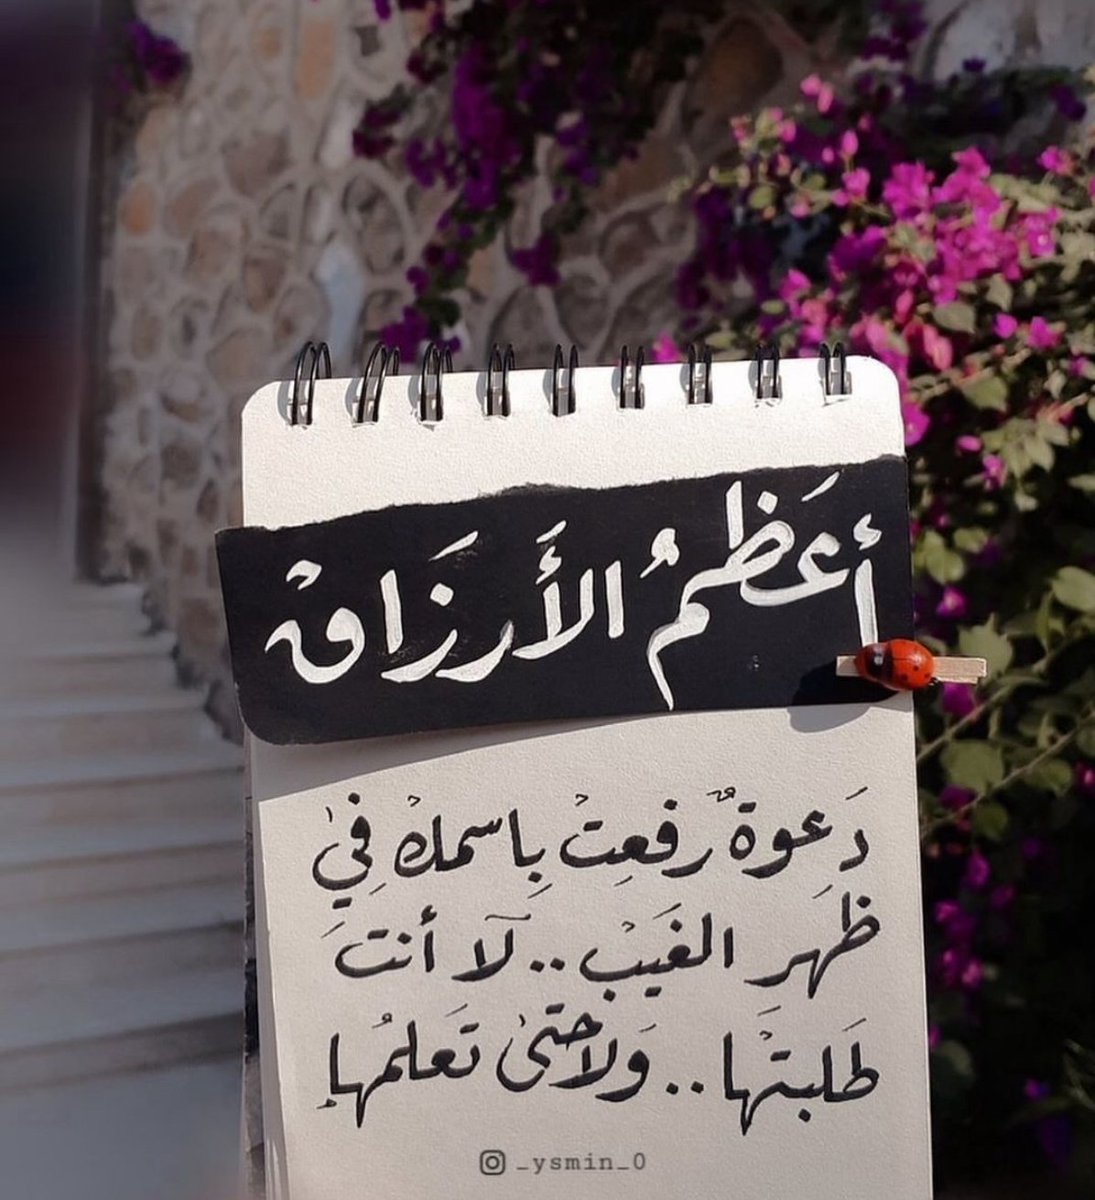 أعَظمُ الأَرزَاقْ
دَعوةٌ رفعِتْ بِاسمكْ فِيْ
ظهَرِ الغَيْب .. لآ أنتَ
طَلبتْهَا .. وَلا حتىٰ تَعلمُها
_ysmin_0